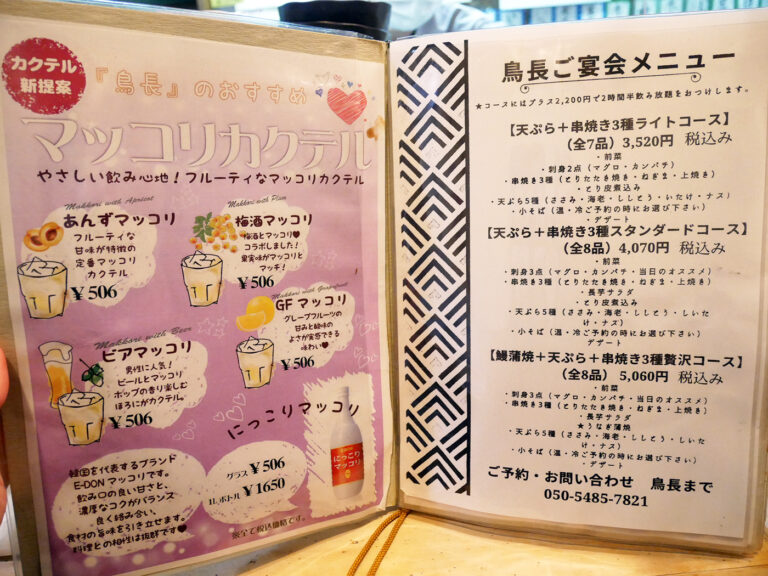 カクテル
新提案
『鳥長』のおすすめ
マッコリカクテル
やさしい飲み心地！フルーティなマッコリカクテル
Makkori with Apricot
あんずマッコリ
フルーティな
甘味が特徴の
定番マッコリ
カクテル
¥506
Makkori with Plum
梅酒マッコリ
梅酒とマッコリ♥
コラボしました！
果実味がマッコリと
マッチ！
¥506
Makkori with Beer
ビアマッコリ
男性に人気！
ビールとマッコリ
ホップの香り楽しむ
ほろにがカクテル。
¥506
Makkori with Grapefruit
GFマッコリ
グレープフルーツの
甘みと酸味の
よさが実感できる
味わい♥
¥506
にっこりマッコリ
にっこり
マッコリ
韓国を代表するブランド
E-DONマッコリです。
飲み口の良い甘さと、
濃厚なコクがバランス
良く絡み合い、
食材の旨味を引き立せます。
料理との相性は抜群です♥
グラス ¥506
1Lボトル ¥1650
※全て税込価格です。
鳥長ご宴会メニュー
★コースにはプラス2,200円で2時間半飲み放題をおつけします。
【天ぷら＋串焼き3種ライトコース】
(全7品) 3,520円 税込み
・前菜
・刺身2点（マグロ・カンパチ）
・串焼き3種（とりたたき焼き・ねぎま・上焼き）
・とり皮煮込み
・天ぷら5種（ささみ・海老・ししとう・いたけ・ナス）
・小そば（温・冷ご予約の時にお選び下さい）
・デザート
【天ぷら＋串焼き3種スタンダードコース】
(全8品) 4,070円 税込み
・前菜
・刺身3点（マグロ・カンパチ・当日のオススメ）
・串焼き3種（とりたたき焼き・ねぎま・上焼き）
・長芋サラダ
・とり皮煮込み
・天ぷら5種（ささみ・海老・ししとう・しいた
け・ナス）
・小そば（温・冷ご予約の時にお選び下さい）
デザート
【鰻蒲焼＋天ぷら＋串焼き3種贅沢コース】
(全8品) 5,060円 税込み
・前菜
・刺身3点（マグロ・カンパチ・当日のオススメ）
・串焼き3種（とりたたき焼き・ねぎま・上焼き）
・長芋サラダ
★うなぎ蒲焼
・天ぷら5種（ささみ・海老・ししとう・しいた
け・ナス）
・小そば（温・冷ご予約の時にお選び下さい）
・デザート
ご予約・お問い合わせ 鳥長まで
050-5485-7821